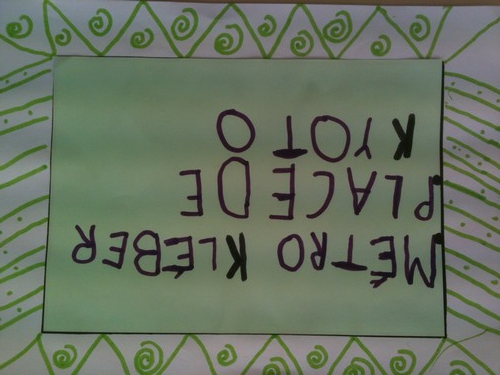 MÉTRO KLÉBER
PLACE DE
KYOTO